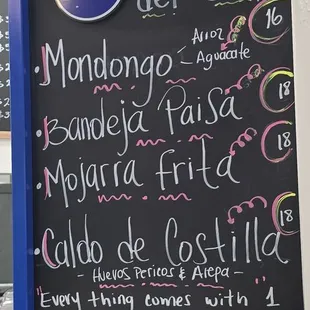 del
16
· Mondongo - Arroz
Aguacate
· Bandeja Paisa 18
· Mojarra frita 18
· Caldo de Costilla 18
- Huevos Pericos & Arepa -
"Every thing comes with "1